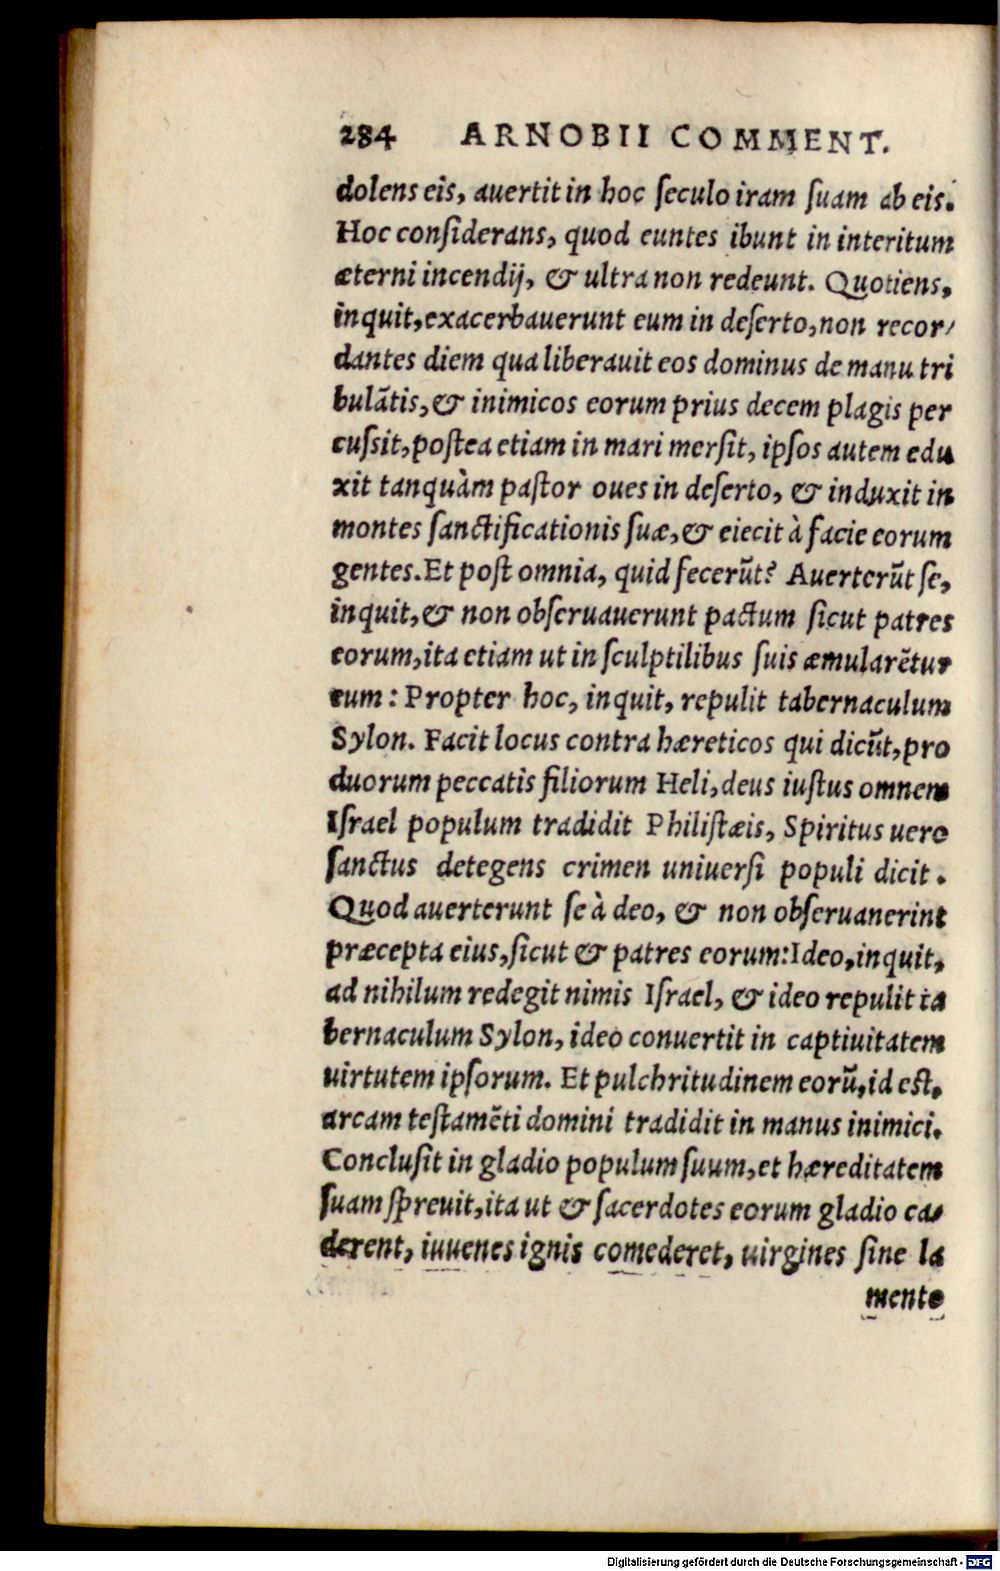 284 ARNOBII COMMENT.
dolens eis, auertit in hoc ſeculo iram ſuam ab eis.
Hoc conſiderans, quod euntes ibunt in interitum
æterni incendij, & ultra non redeunt. Quotiens,
inquit, exacerbauerunt eum in deſerto, non recor/
dantes diem qua liberauit eos dominus de manu tri
bulātis, & inimicos eorum prius decem plagis per
cuſſit, poſtea etiam in mari merſit, ipſos autem edu
xit tanquàm paſtor oues in deſerto, & induxit in
montes ſanctificationis ſuæ, & eiecit à facie eorum
gentes. Et poſt omnia, quid fecerūt? Auerterūt ſe,
inquit, & non obſeruauerunt pactum ſicut patres
eorum, ita etiam ut in ſculptilibus ſuis æmularētur
eum: Propter hoc, inquit, repulit tabernaculum
Sylon. Facit locus contra hæreticos qui dicūt, pro
duorum peccatis filiorum Heli, deus iuſtus omnem
Iſrael populum tradidit Philiſtæis, Spiritus uero
ſanctus detegens crimen uniuerſi populi dicit.
Quod auerterunt ſe à deo, & non obſeruanerint
præcepta eius, ſicut & patres eorum: Ideo, inquit,
ad nihilum redegit nimis Iſrael, & ideo repulit ta
bernaculum Sylon, ideo conuertit in captiuitatem
uirtutem ipſorum. Et pulchritudinem eorū, id eſt,
arcam teſtamēti domini tradidit in manus inimici.
Concluſit in gladio populum ſuum, et hæreditatem
ſuam ſpreuit, ita ut & ſacerdotes eorum gladio ca-
derent, iuuenes ignis comederet, uirgines ſine la
mento
Digitalisierung gefördert durch die Deutsche Forschungsgemeinschaft - DFG